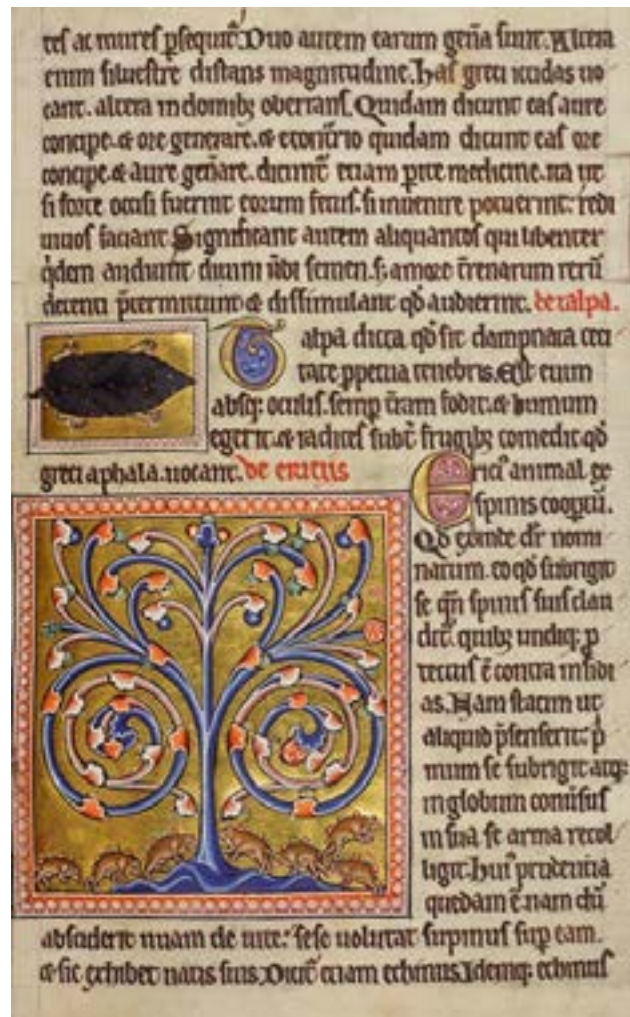 res ac mures ꝑsequit᷑. Duo autem earum gen̄a sunt. Altera
enim siluestre distans magnitudine. has greci ictidas uo
cant. altera in domibꝫ oberrans. Quidam dicunt eas aure
concipe. & ore generare. & econt̄rio quidam dicunt eas ore
concipe. & aure gen̄are. dicunt᷑ etiam ꝑite medicine. ita ut
si forte occisi fuerint eorum fetus. si inuenire potuerint. redi
uiuos faciant. Significant autem aliquantos qui libenter
q̇dem audiunt diuini ūbi semen. s; amore t̄renarum rerū
detenti p̄termittunt & dissimulant qd̄ audierint. de talpa.
Talpa dicta qd̄ sit dampnata ceci
tate ꝑpetua tenebris. Est enim
absqꝫ oculis. semꝑ t̄ram fodit. & humum
egerit. & radices subt̄ frugibꝫ comedit qd̄
greci aphala. uocant. de ericiis
Ericiꝰ animal ex
spinis coopertū.
Qd̄ exinde dr̄ nomi
natum. eo qd̄ subrigit
se qn̄ spinis suis clau
dit᷑. quibꝫ undiqꝫ ꝓ
tectus ē contra insidi
as. Nam statim ut
aliquid p̄senserit. p̄
mum se subrigit atqꝫ
in globum con̄sus
in sua se arma recol
ligit. huiꝰ prudentia
quedam ē. nam cū
absciderit uuam de uite. sese uolutat supinus suꝑ eam.
& sic exhibet natis suis. Dicit᷑ etiam echinus. Idemqꝫ echinus